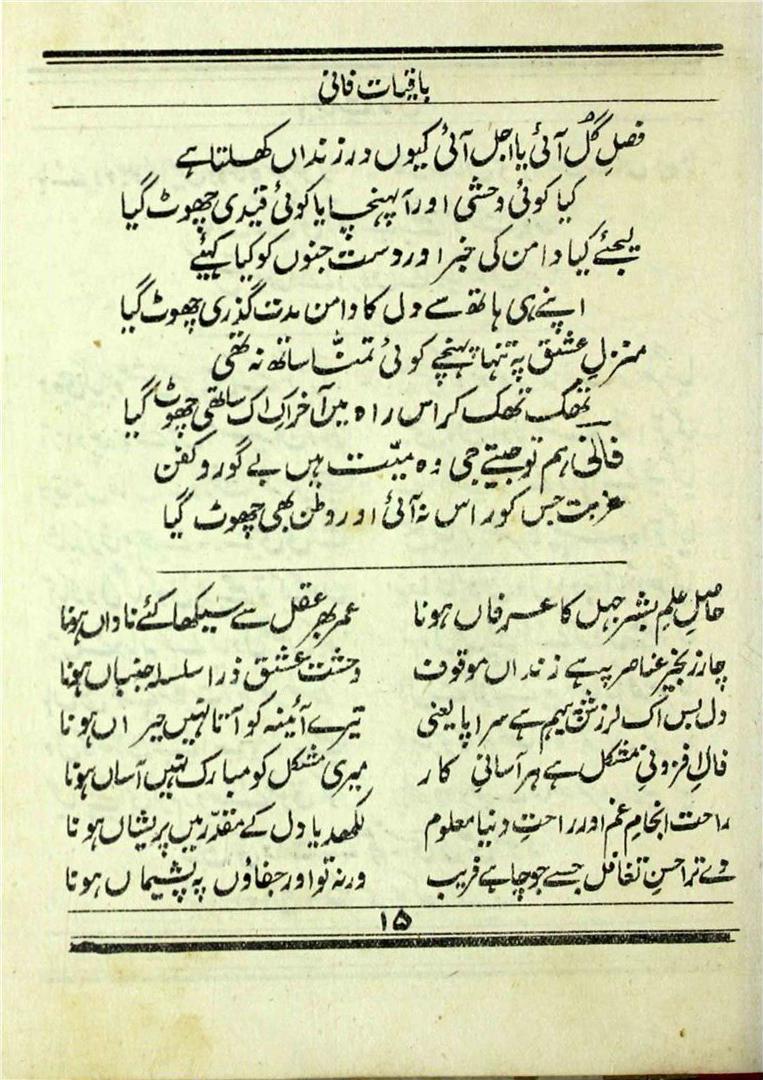 باقیات فانی
فصلِ گُل آئی یا اجل آئی کیوں در زنداں کھلتا ہے
کیا کوئی وحشی اور آ پہنچا یا کوئی قیدی چھوٹ گیا
لیجئے کیا دامن کی خبر اور دست جنوں کو کیا کہیئے
اپنے ہی ہاتھ سے دل کا دامن مدت گذری چھوٹ گیا
منزلِ عشق پہ تنہا پہنچے کوئی تمنّا ساتھ نہ تھی
تھک تھک کر اس راہ میں آخر اک اک ساتھی چھوٹ گیا
فانی ہم تو جیتے جی وہ میّت ہیں بے گور و کفن
غربت جس کو راس نہ آئی اور وطن بھی چھوٹ گیا
حاصلِ علمِ بشر جہل کا عرفاں ہونا عمر بھر عقل سے سیکھا کئے ناداں ہونا
چار زنجیرِ عناصر پہ ہے زنداں موقوف وحشت عشق ذرا سلسلہ جنباں ہونا
دل بس اک لرزش پیہم ہے سراپا یعنی تیرے آئینہ کو آتا نہیں حیراں ہونا
فالِ افزونیِ مشکل ہے ہر آسانیِ کار میری مشکل کو مبارک نہیں آساں ہونا
راحت انجامِ غم اور راحتِ دنیا معلوم لکھدیا دل کے مقدّر میں پریشاں ہونا
دے ترا حسنِ تغافل جسے جو چاہے فریب ورنہ تو اور جفاؤں پہ پشیماں ہونا
۱۵